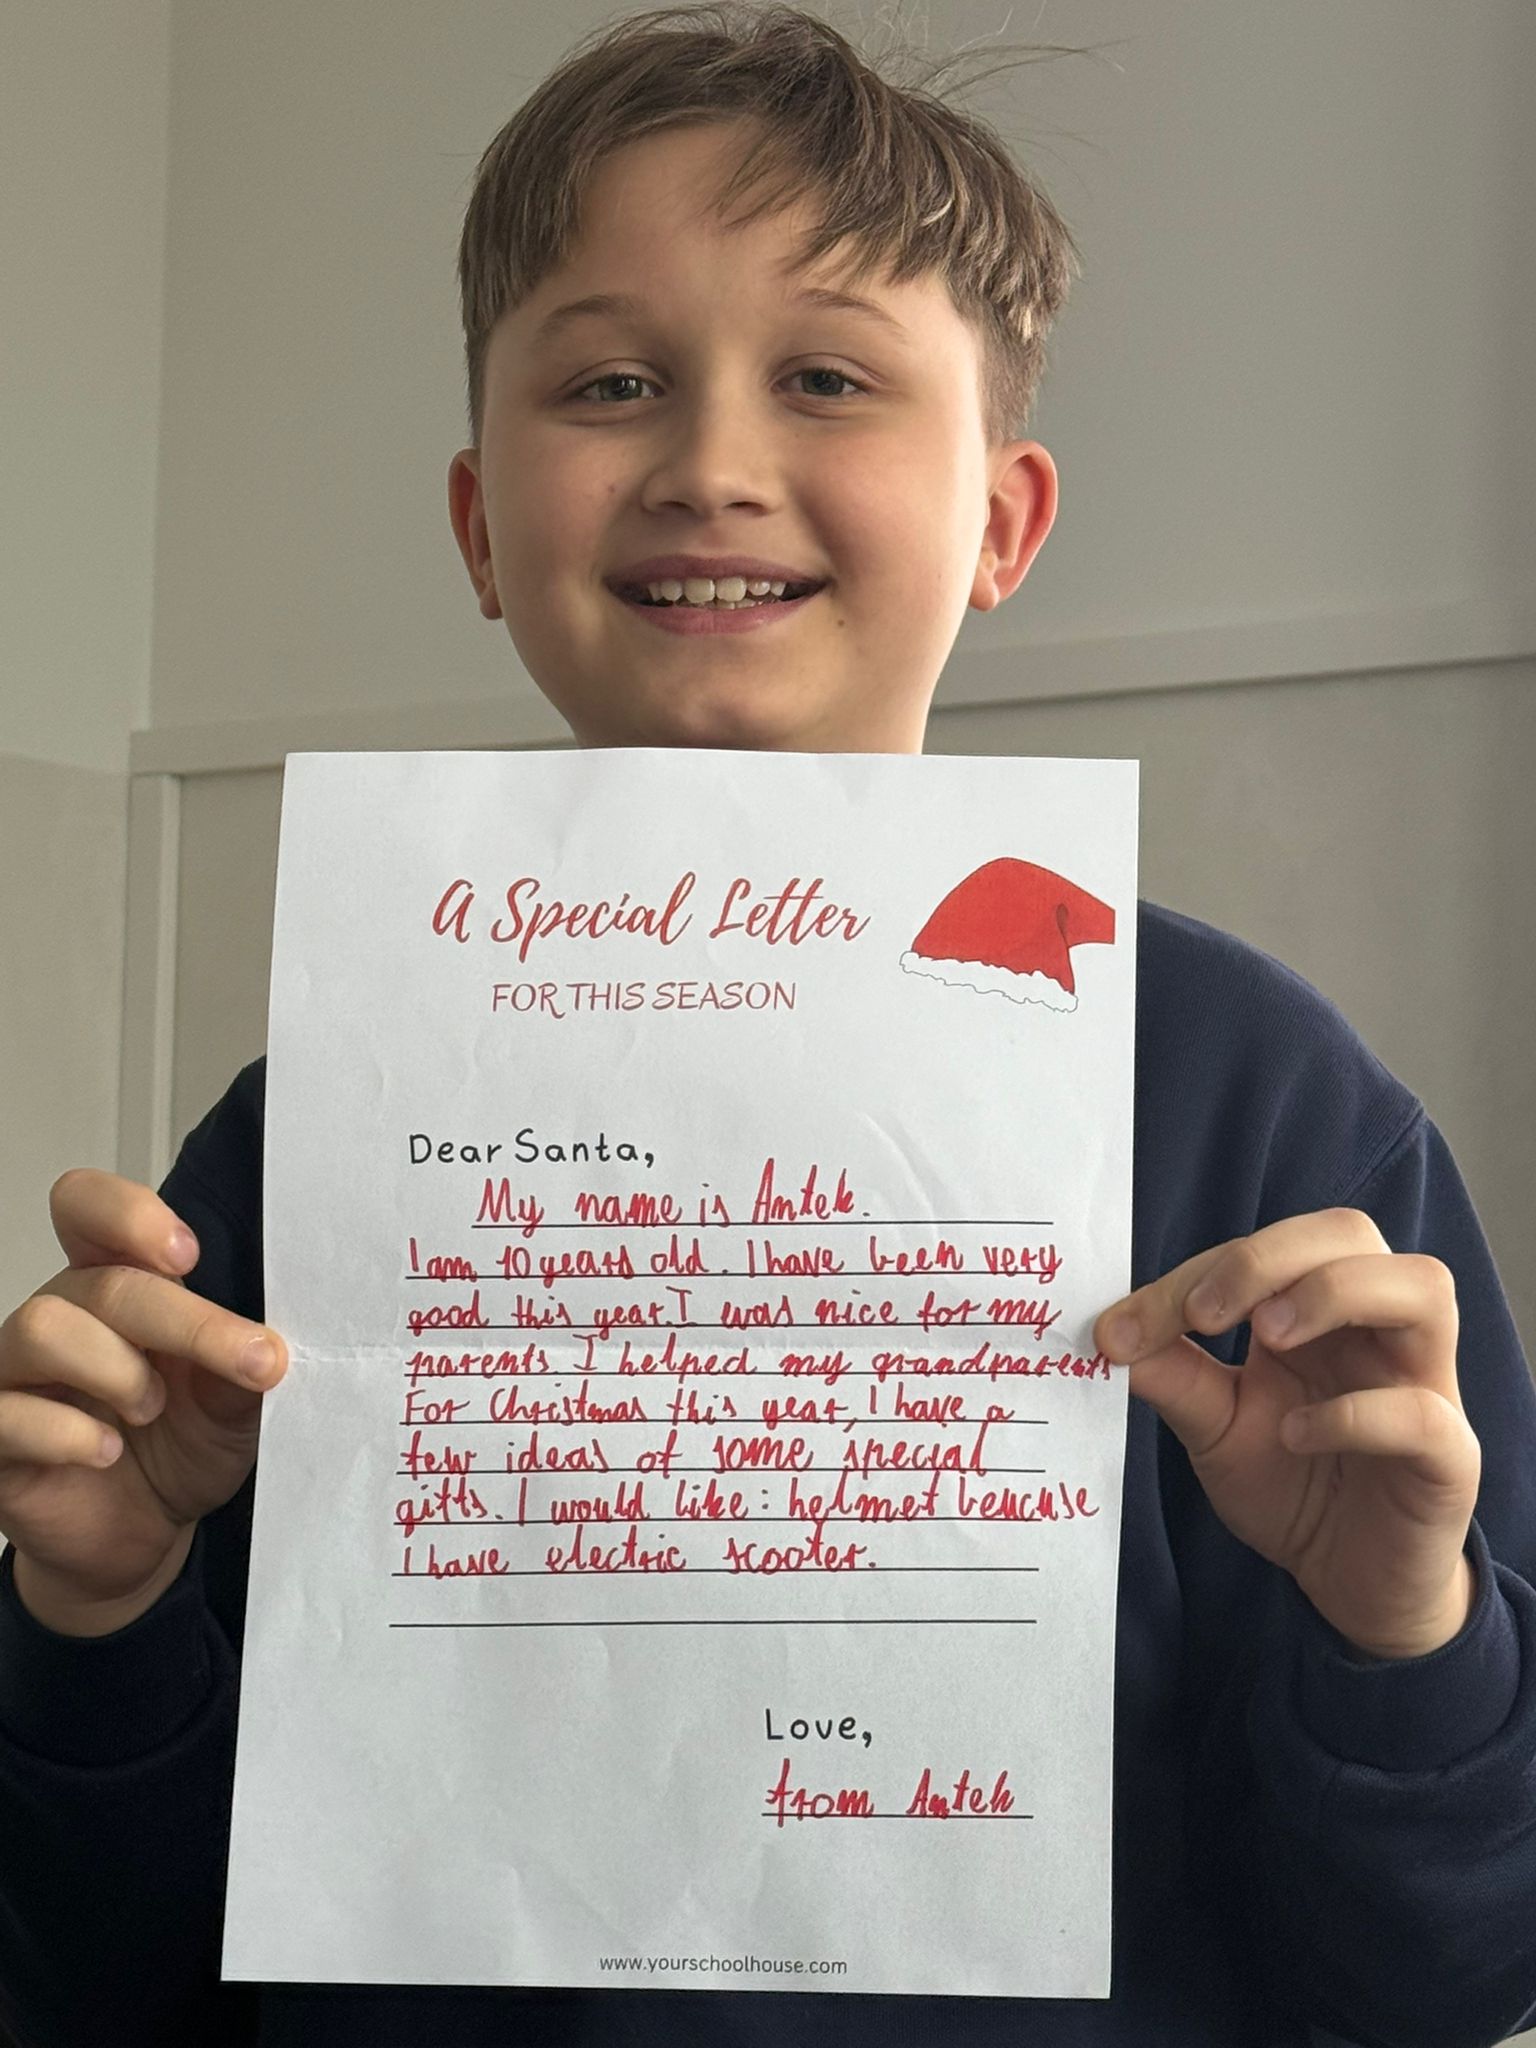 A Special Letter
FOR THIS SEASON
Dear Santa,
My name is Antek.
I am 10 years old. I have been very
good this year. I was nice for my
parents. I helped my grandparents
For Christmas this year, I have a
few ideas of some special
gifts. I would like: helmet beucuse
I have electric scooter.
Love,
from Antek
www.yourschoolhouse.com